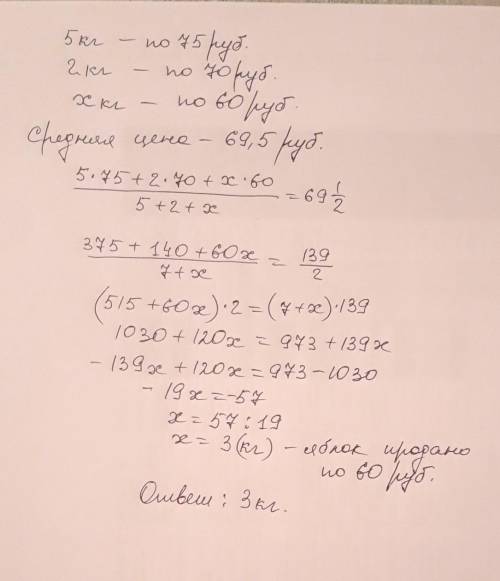 5 кг – по 75 руб.
2 кг – по 70 руб.
x кг – по 60 руб.
Средняя цена – 69,5 руб.
(5·75+2·70+x·60)/(5+2+x) = 69 1/2
(375+140+60x)/(7+x) = 139/2
(515+60x)·2=(7+x)·139
1030+120x = 973+139x
-139x+120x=973-1030
-19x=-57
x=57:19
x= 3(кг) – яблок продано
по 60 руб.
Ответ: 3кг.